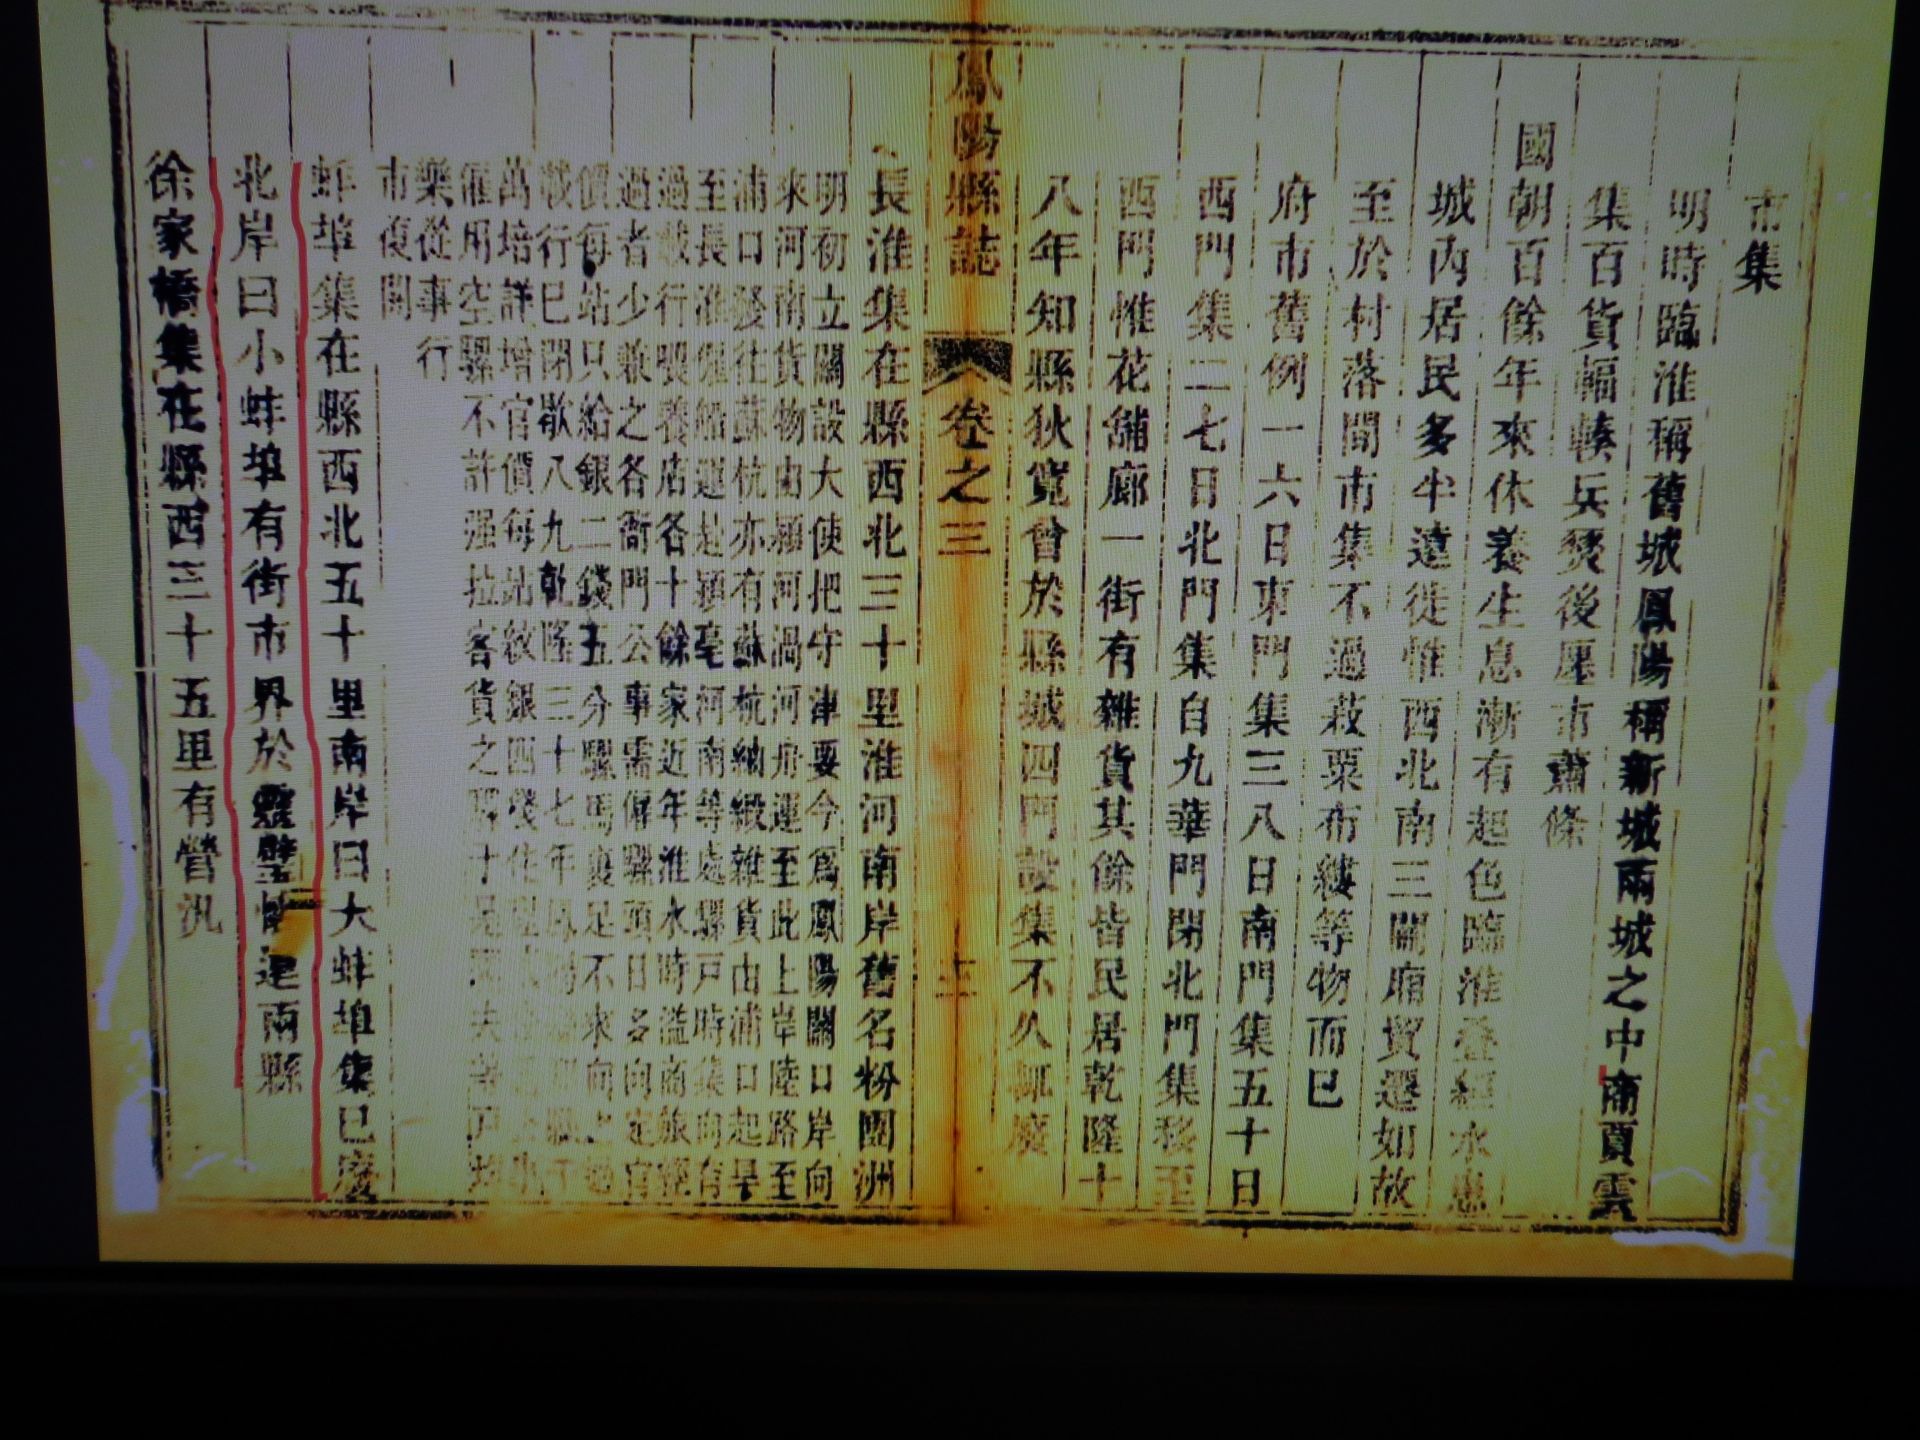 市集
明時臨淮稱舊城鳳陽稱新城兩城之中商賈雲
集百貨輻輳兵燹後廛市蕭條
國朝百餘年來休養生息漸有起色臨淮疊經水患
城內居民多半遠徙惟西北南三關廂貿遷如故
至於村落間市集不過菽粟布縷等物而已
府市舊例一六日東門集三八日南門集五十日
西門集二七日北門集自九華門閉北門集移至
西門惟花舖廊一街有雜貨其餘皆民居乾隆十
八年知縣狄寬曾於縣城四門設集不久輒廢
鳳陽縣誌 卷之三 十二
長淮集在縣西北三十里淮河南岸舊名粉團洲
明初立關設大使把守津要今為鳳陽關口岸向
來河南貨物由潁河渦河舟運至此上岸陸路至
浦口發往蘇杭亦有蘇杭紬緞雜貨由浦口起旱
至長淮僱船運赴潁亳河南等處騾戶時集向有
過載行喂養店各十餘家近年淮水時溢商旅經
過者少兼之各衙門公事需僱騾頭日多向定官
價每站只給銀二錢五分騾馬裹足不來向之過
載行已閉歇八九乾隆三十七年鳳陽
萬培詳增官價每站紋銀四錢
僱用空騾不許强拉客貨之騾十是
樂從事行
市復開
蚌埠集在縣西北五十里南岸曰大蚌埠集已廢
北岸曰小蚌埠有街市界於靈璧懷遠兩縣
徐家橋集在縣西三十五里有營汛